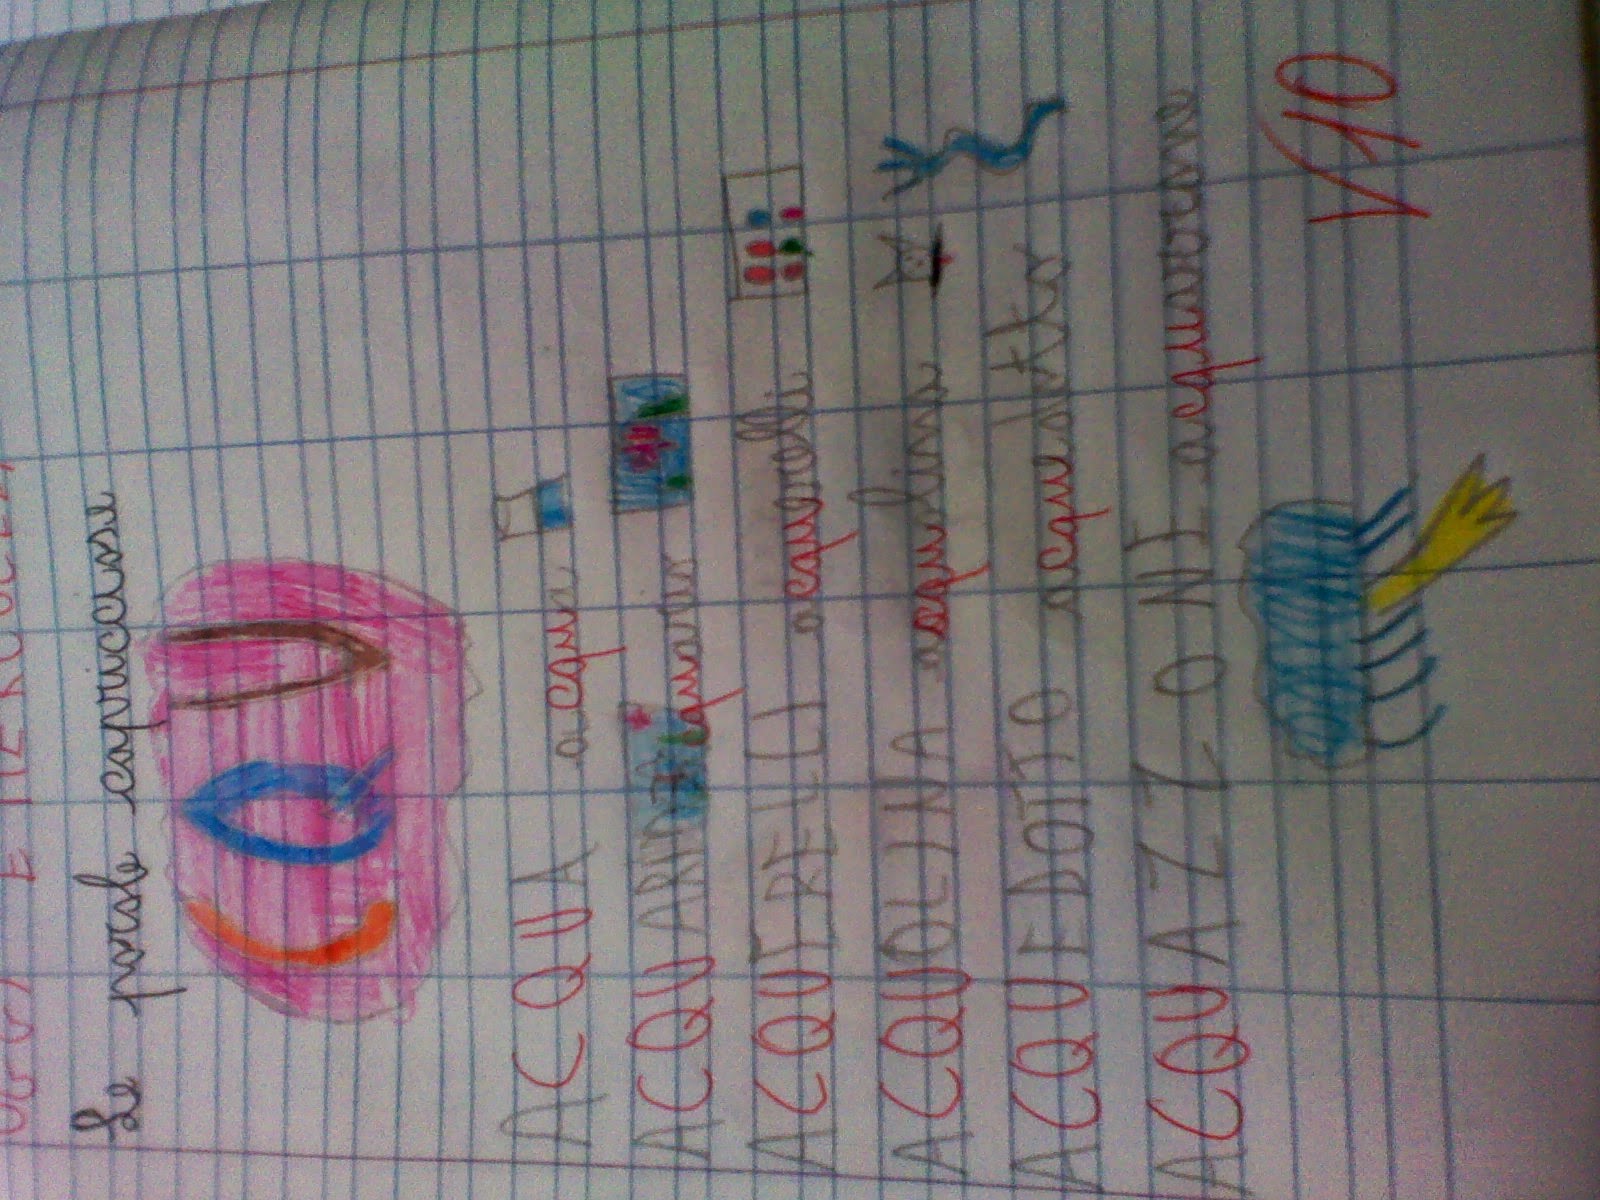 OGGI È MERCOLEDÌ
Le parole capricciose
CQU
ACQUA acqua
ACQUARIO acquario
ACQUERELLI acquerelli
ACQUOLINA acquolina
ACQUEDOTTO acquedotto
ACQUAZZONE acquazzone
V10